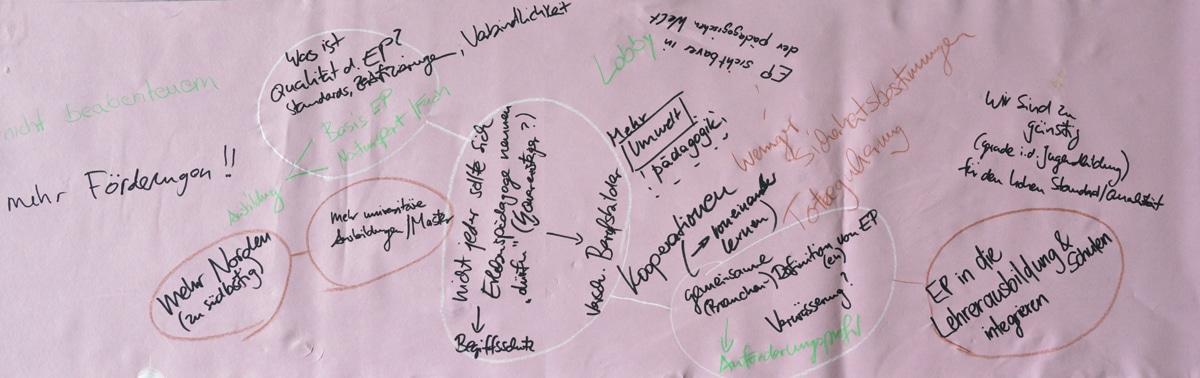 nicht beabenteuern
mehr Förderungen!!
Was ist
Qualität d. EP?
Standards, Zertifizierungen, Verbindlichkeit
Basis EP
Natursport/Fach
Ausbildung
mehr universitäre
Ausbildungen/Master
mehr Norden
(zu südlastig)
nicht jeder sollte sich
Erlebnispädagoge nennen
"dürfen"
→ Begriffsschutz
→ Versch. Berufsbilder
Lobby
EP sichtbarer in
der pädagogischen Welt
Mehr
Umwelt
pädagogik!
Weniger
Sicherheitsbestimmungen
Kooperationen
(→ voneinander
lernen)
gemeinsame
(Branchen-) Definition(en) von EP
Verwässerung?
↓
Anforderungsprofil
Wir sind zu
günstig
(grade i.d. Jugendbildung)
für den hohen Standard/Qualität
EP in die
Lehrerausbildung &
Schulen
integrieren